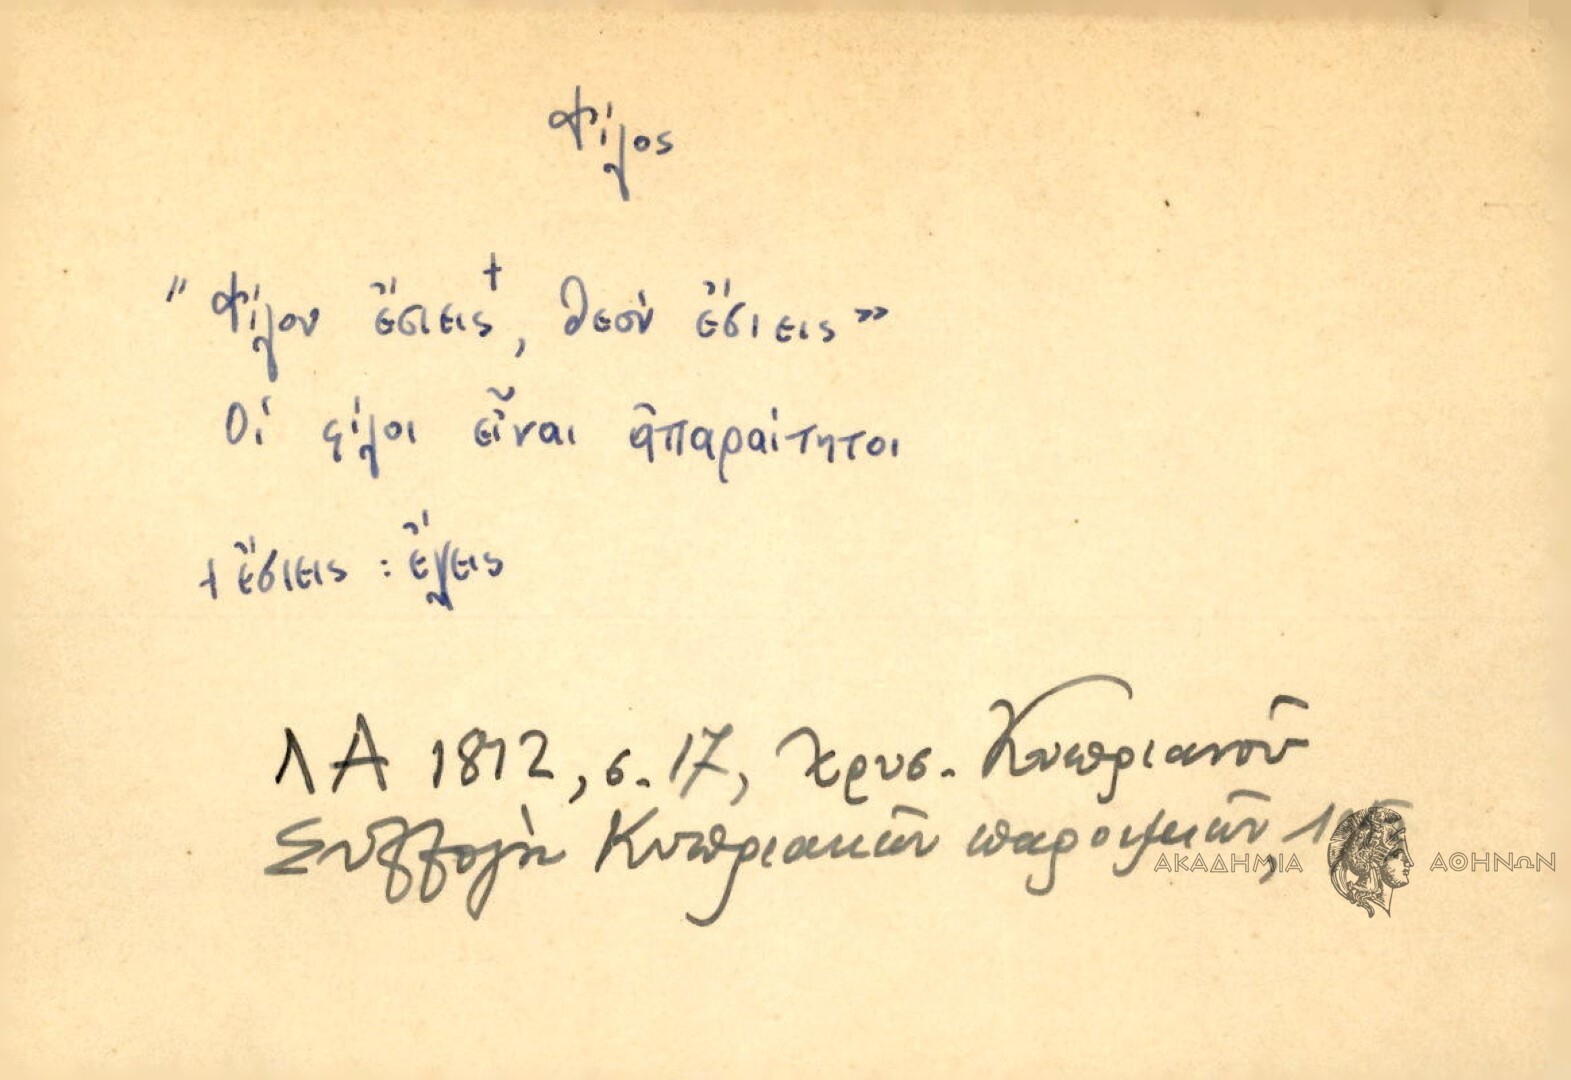 Φίλος
"Φίλον ἔσιεις+, θεόν ἔσιεις»
Οἱ φίλοι εἶναι ἀπαραίτητοι
+ ἔσιεις : ἔχεις
ΛΑ 1812, σ. 17, Χρυσ. Κυπριανοῦ
Συλλογὴ Κυπριακῶν παροιμιῶν,
ΑΚΑΔΗΜΙΑ ΑΘΗΝΩΝ